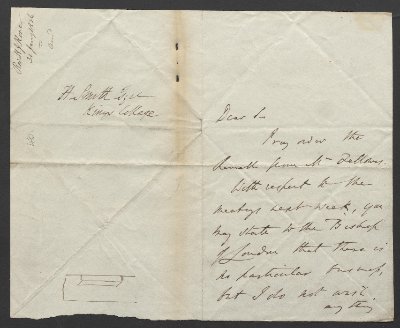 H. Smith Esqr
King's College
Dear Sir
Pray order the
from Mr Fellows.
With respect to the
meetings next week, you
may state to the Bishop
of London that there is
no particular business,
but I do not wish
any thing